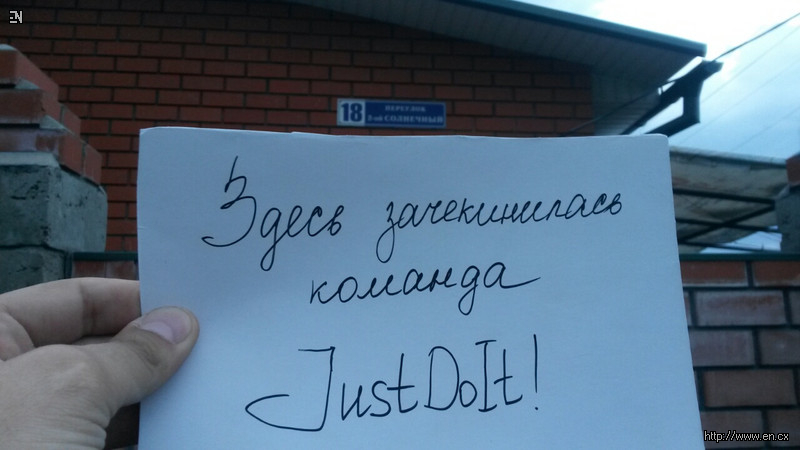 EN
18
ПЕРЕУЛОК
2-ой СОЛНЕЧНЫЙ
Здесь зачекинилась
команда
JustDoIt!
http://www.en.cx